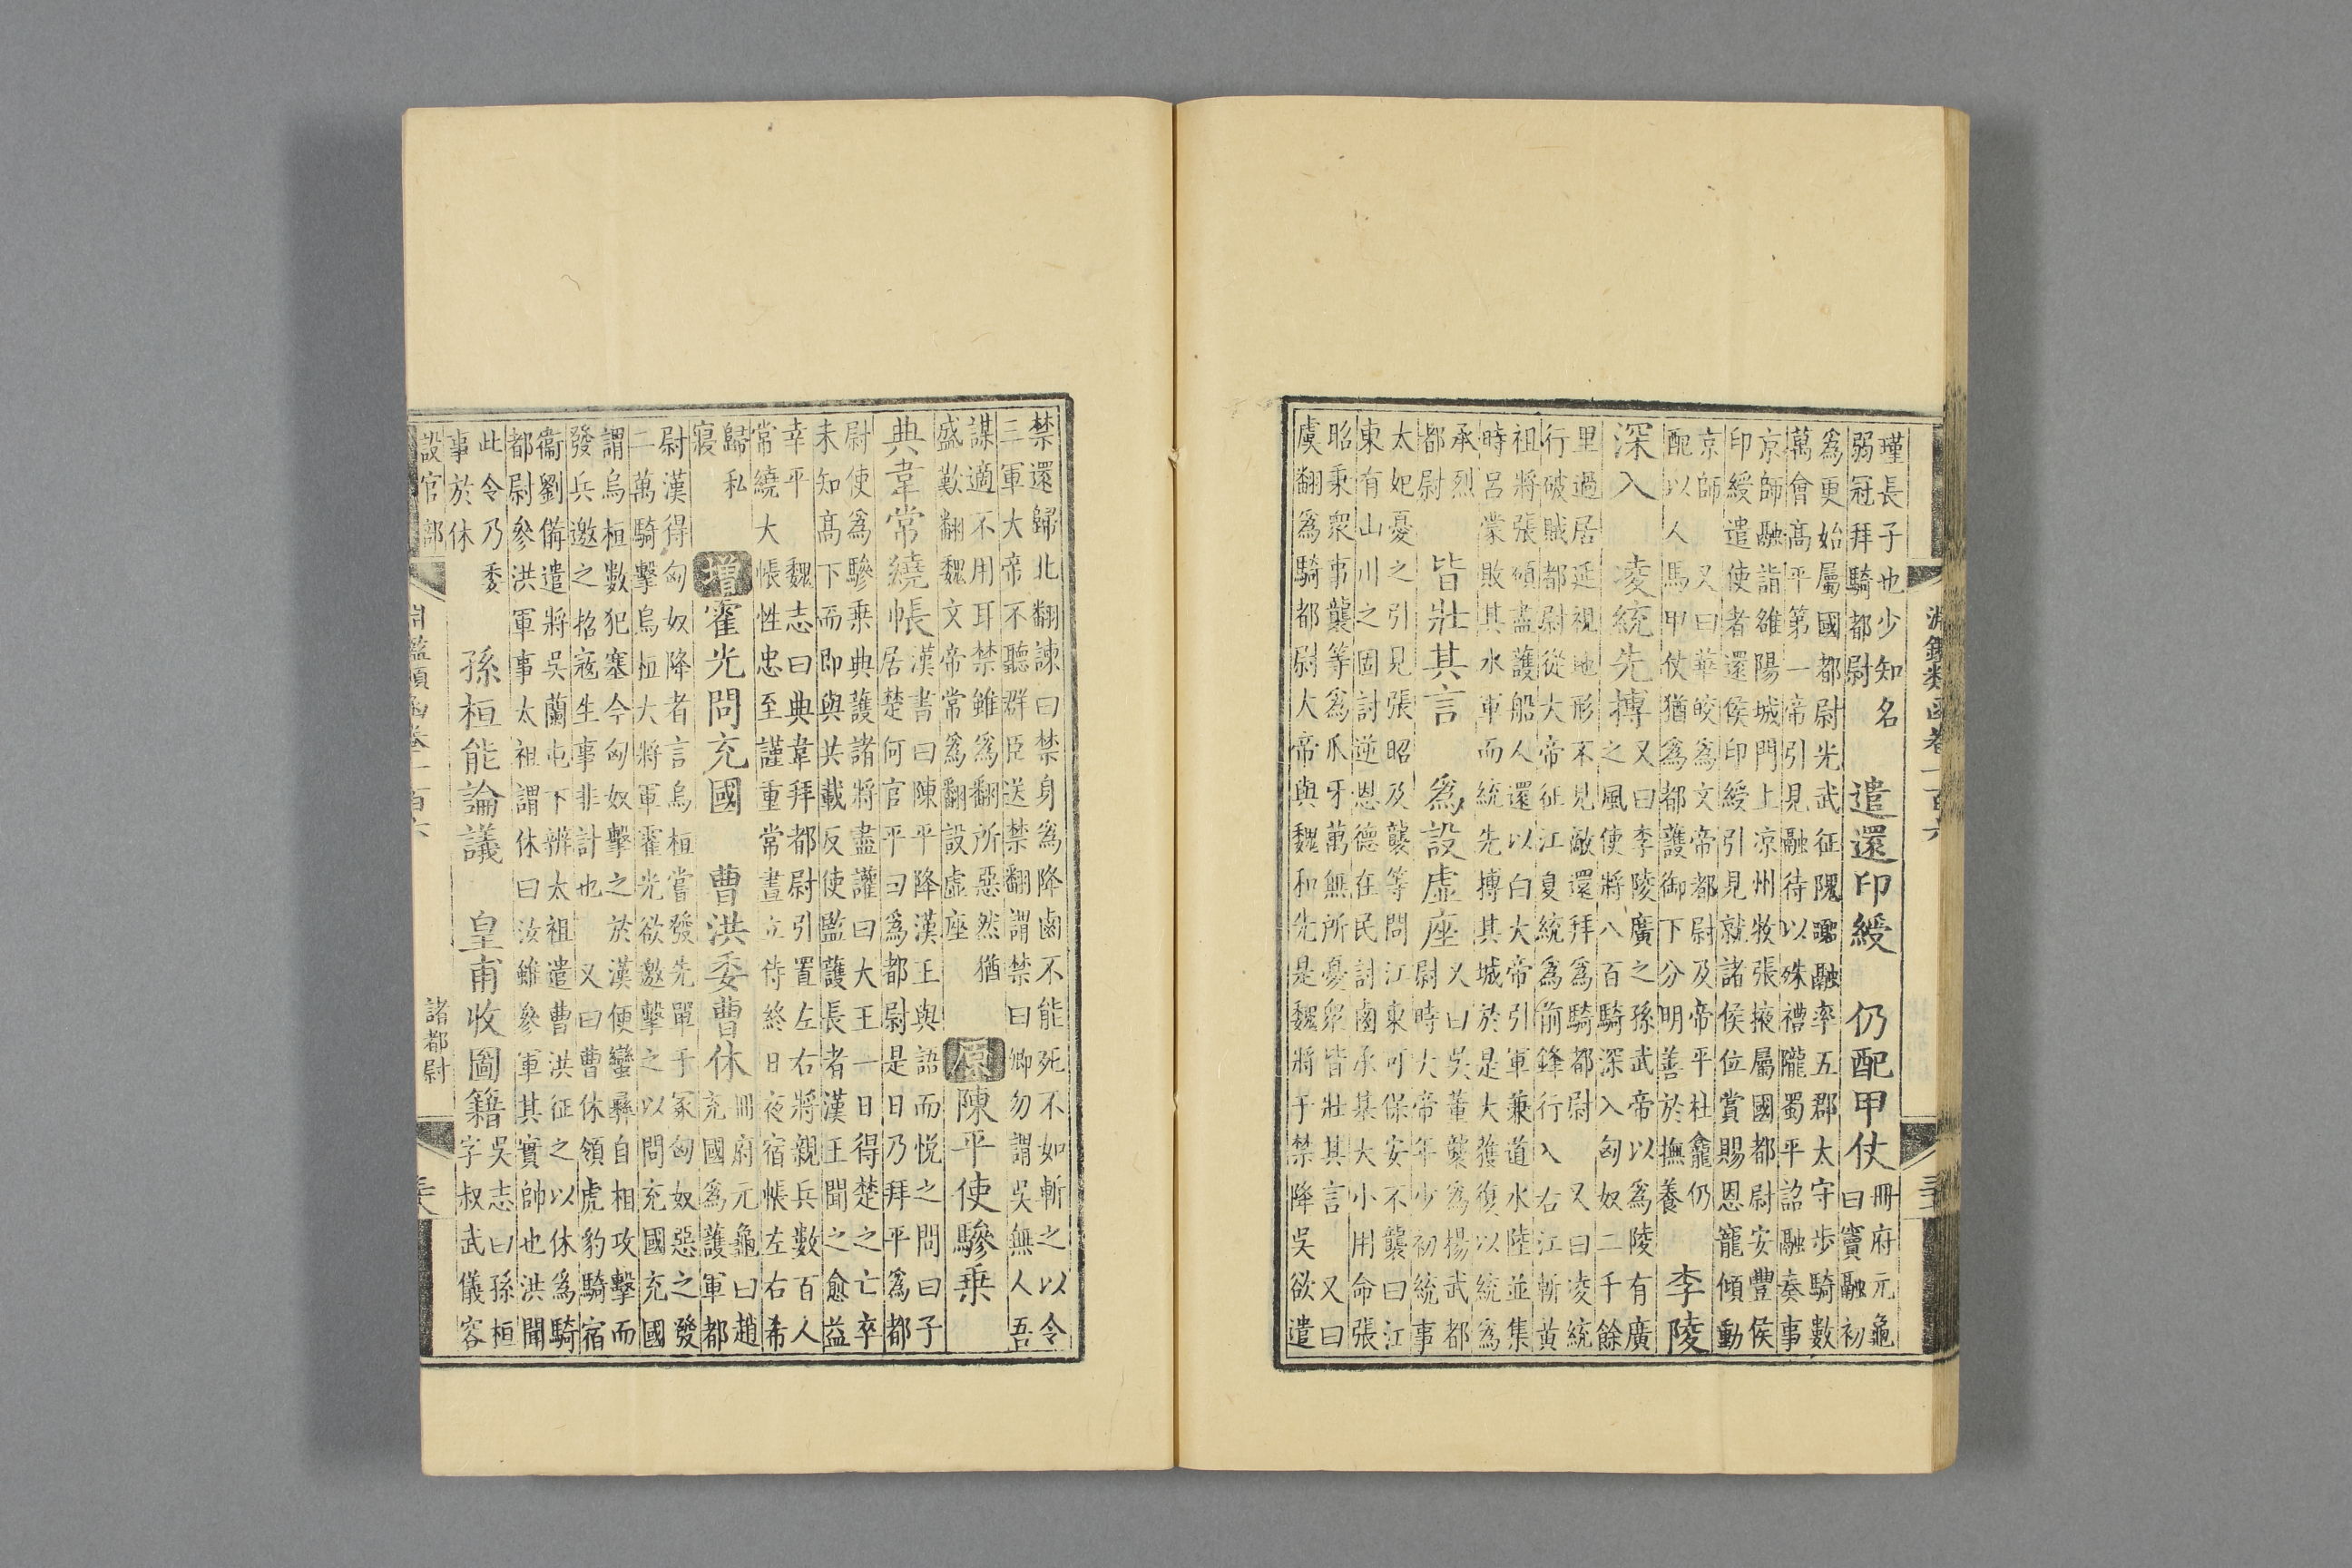 淵鑑類函卷一百六
瑾長子也少知名
弱冠拜騎都尉
遣還印綬　仍配甲仗
冊府元龜
曰竇融初
爲更始屬國都尉光武征隗囂融率五郡太守步騎數
萬會高平第一帝引見融待以殊禮隴蜀平詔融奏事
京師融詣雒陽城門上凉州牧張掖屬國都尉安豐侯
印綬遣使者還侯印綬引見就諸侯位賞賜恩寵傾動
京師　又曰華皎爲文帝都尉及帝平杜龕仍
配以人馬甲仗猶爲都護御下分明善於撫養
李陵
深入　凌統先搏
又曰李陵廣之孫武帝以爲陵有廣
之風使將八百騎深入匈奴二千餘
里過居延視地形不見敵還拜爲騎都尉　又曰凌統
行破賊都尉從大帝征江夏統爲前鋒行入右江斬黃
祖將張碩盡護船人還以白大帝引軍兼道水陸並集
時呂蒙敗其水軍而統先搏其城於是大獲復以統爲
承烈
都尉
皆壯其言　爲設虛座
又曰吳董襲爲揚武都
尉時大帝年少初統事
太妃憂之引見張昭及襲等問江東可保安不襲曰江
東有山川之固討逆恩德在民討鹵承基大小用命張
昭秉衆事襲等爲爪牙萬無所憂衆皆壯其言　又曰
虞翻爲騎都尉大帝與魏和先是魏將于禁降吳欲遣
禁還歸北翻諫曰禁身爲降鹵不能死不如斬之以令
三軍大帝不聽群臣送禁翻謂禁曰卿勿謂吳無人吾
謀適不用耳禁雖爲翻所惡然猶
盛歎翻魏文帝常爲翻設虛座
原陳平使驂乗
典韋常繞帳
漢書曰陳平降漢王與語而悅之問曰子
居楚何官平曰爲都尉是日乃拜平爲都
尉使爲驂乗典護諸將盡讙曰大王一日得楚之亡卒
未知高下而即與共載反使監護長者漢王聞之愈益
幸平　魏志曰典韋拜都尉引置左右將親兵數百人
常繞大帳性忠至謹重常晝立侍終日夜宿帳左右希
歸私
寢
增霍光問充國　曹洪委曹休
冊府元龜曰趙
充國爲護軍都
尉漢得匈奴降者言烏桓嘗發先單于冢匈奴惡之發
二萬騎擊烏桓大將軍霍光欲邀擊之以問充國充國
謂烏桓數犯塞今匈奴擊之於漢便蠻彝自相攻擊而
發兵邀之招寇生事非計也　又曰曹休領虎豹騎宿
衞劉備遣將吳蘭屯下辨太祖遣曹洪征之以休爲騎
都尉參洪軍事太祖謂休曰汝雖參軍其實帥也洪聞
此令乃委
事於休
孫桓能論議　皇甫收圖籍
吳志曰孫桓
字叔武儀容
設官部
淵鑑類函卷一百六
諸都尉